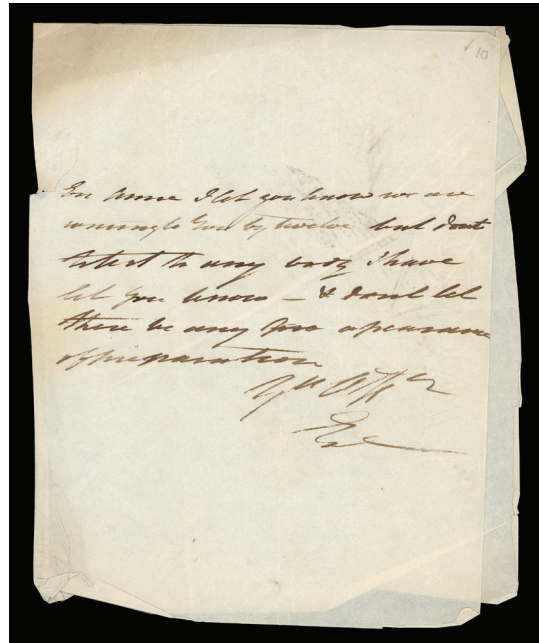 10
Anne I let you know we are
coming to you by twelve but dont
to any body I have
let you know – & dont let
there be any apearance
of preparation